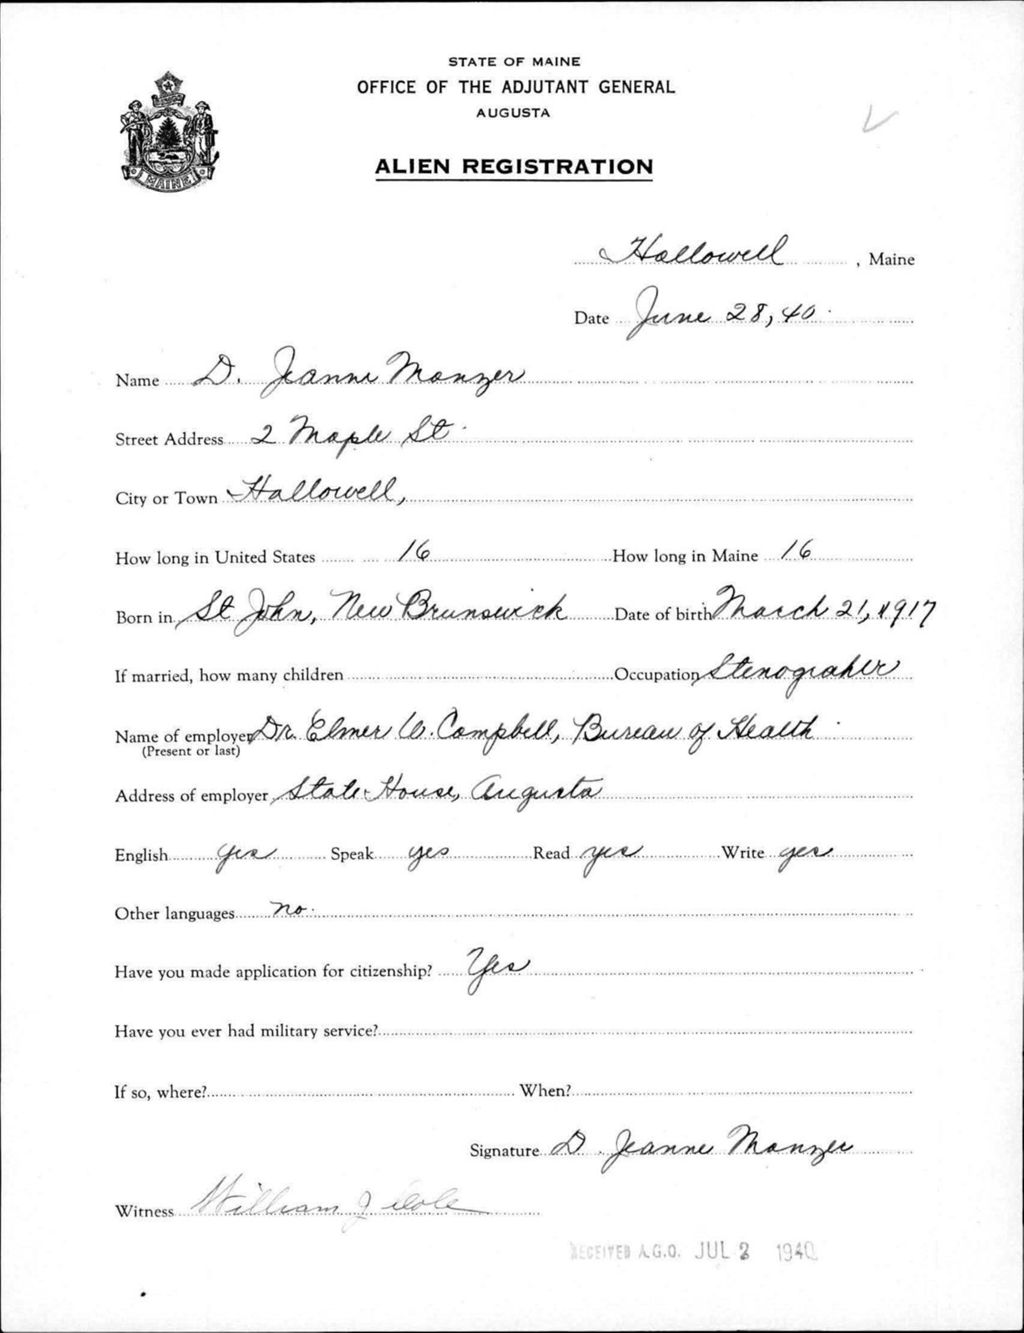 STATE OF MAINE
OFFICE OF THE ADJUTANT GENERAL
AUGUSTA
ALIEN REGISTRATION
MAINE
Hallowell, Maine
Date June 28, 40.
Name D. Jeanne Manzer
Street Address 2 Maple St.
City or Town Hallowell,
How long in United States 16 How long in Maine 16
Born in St John, New Brunswick Date of birth March 21, 1917
If married, how many children Occupation Stenograher
Name of employer Dr. Elmer W. Campbell, Bureau of Health
(Present or last)
Address of employer State House, Augusta
English yes Speak yes Read yes Write yes
Other languages no.
Have you made application for citizenship? Yes
Have you ever had military service?
If so, where? When?
Signature D. Jeanne Manzer
Witness William J
RECEIVED A.G.O. JUL 2 1940